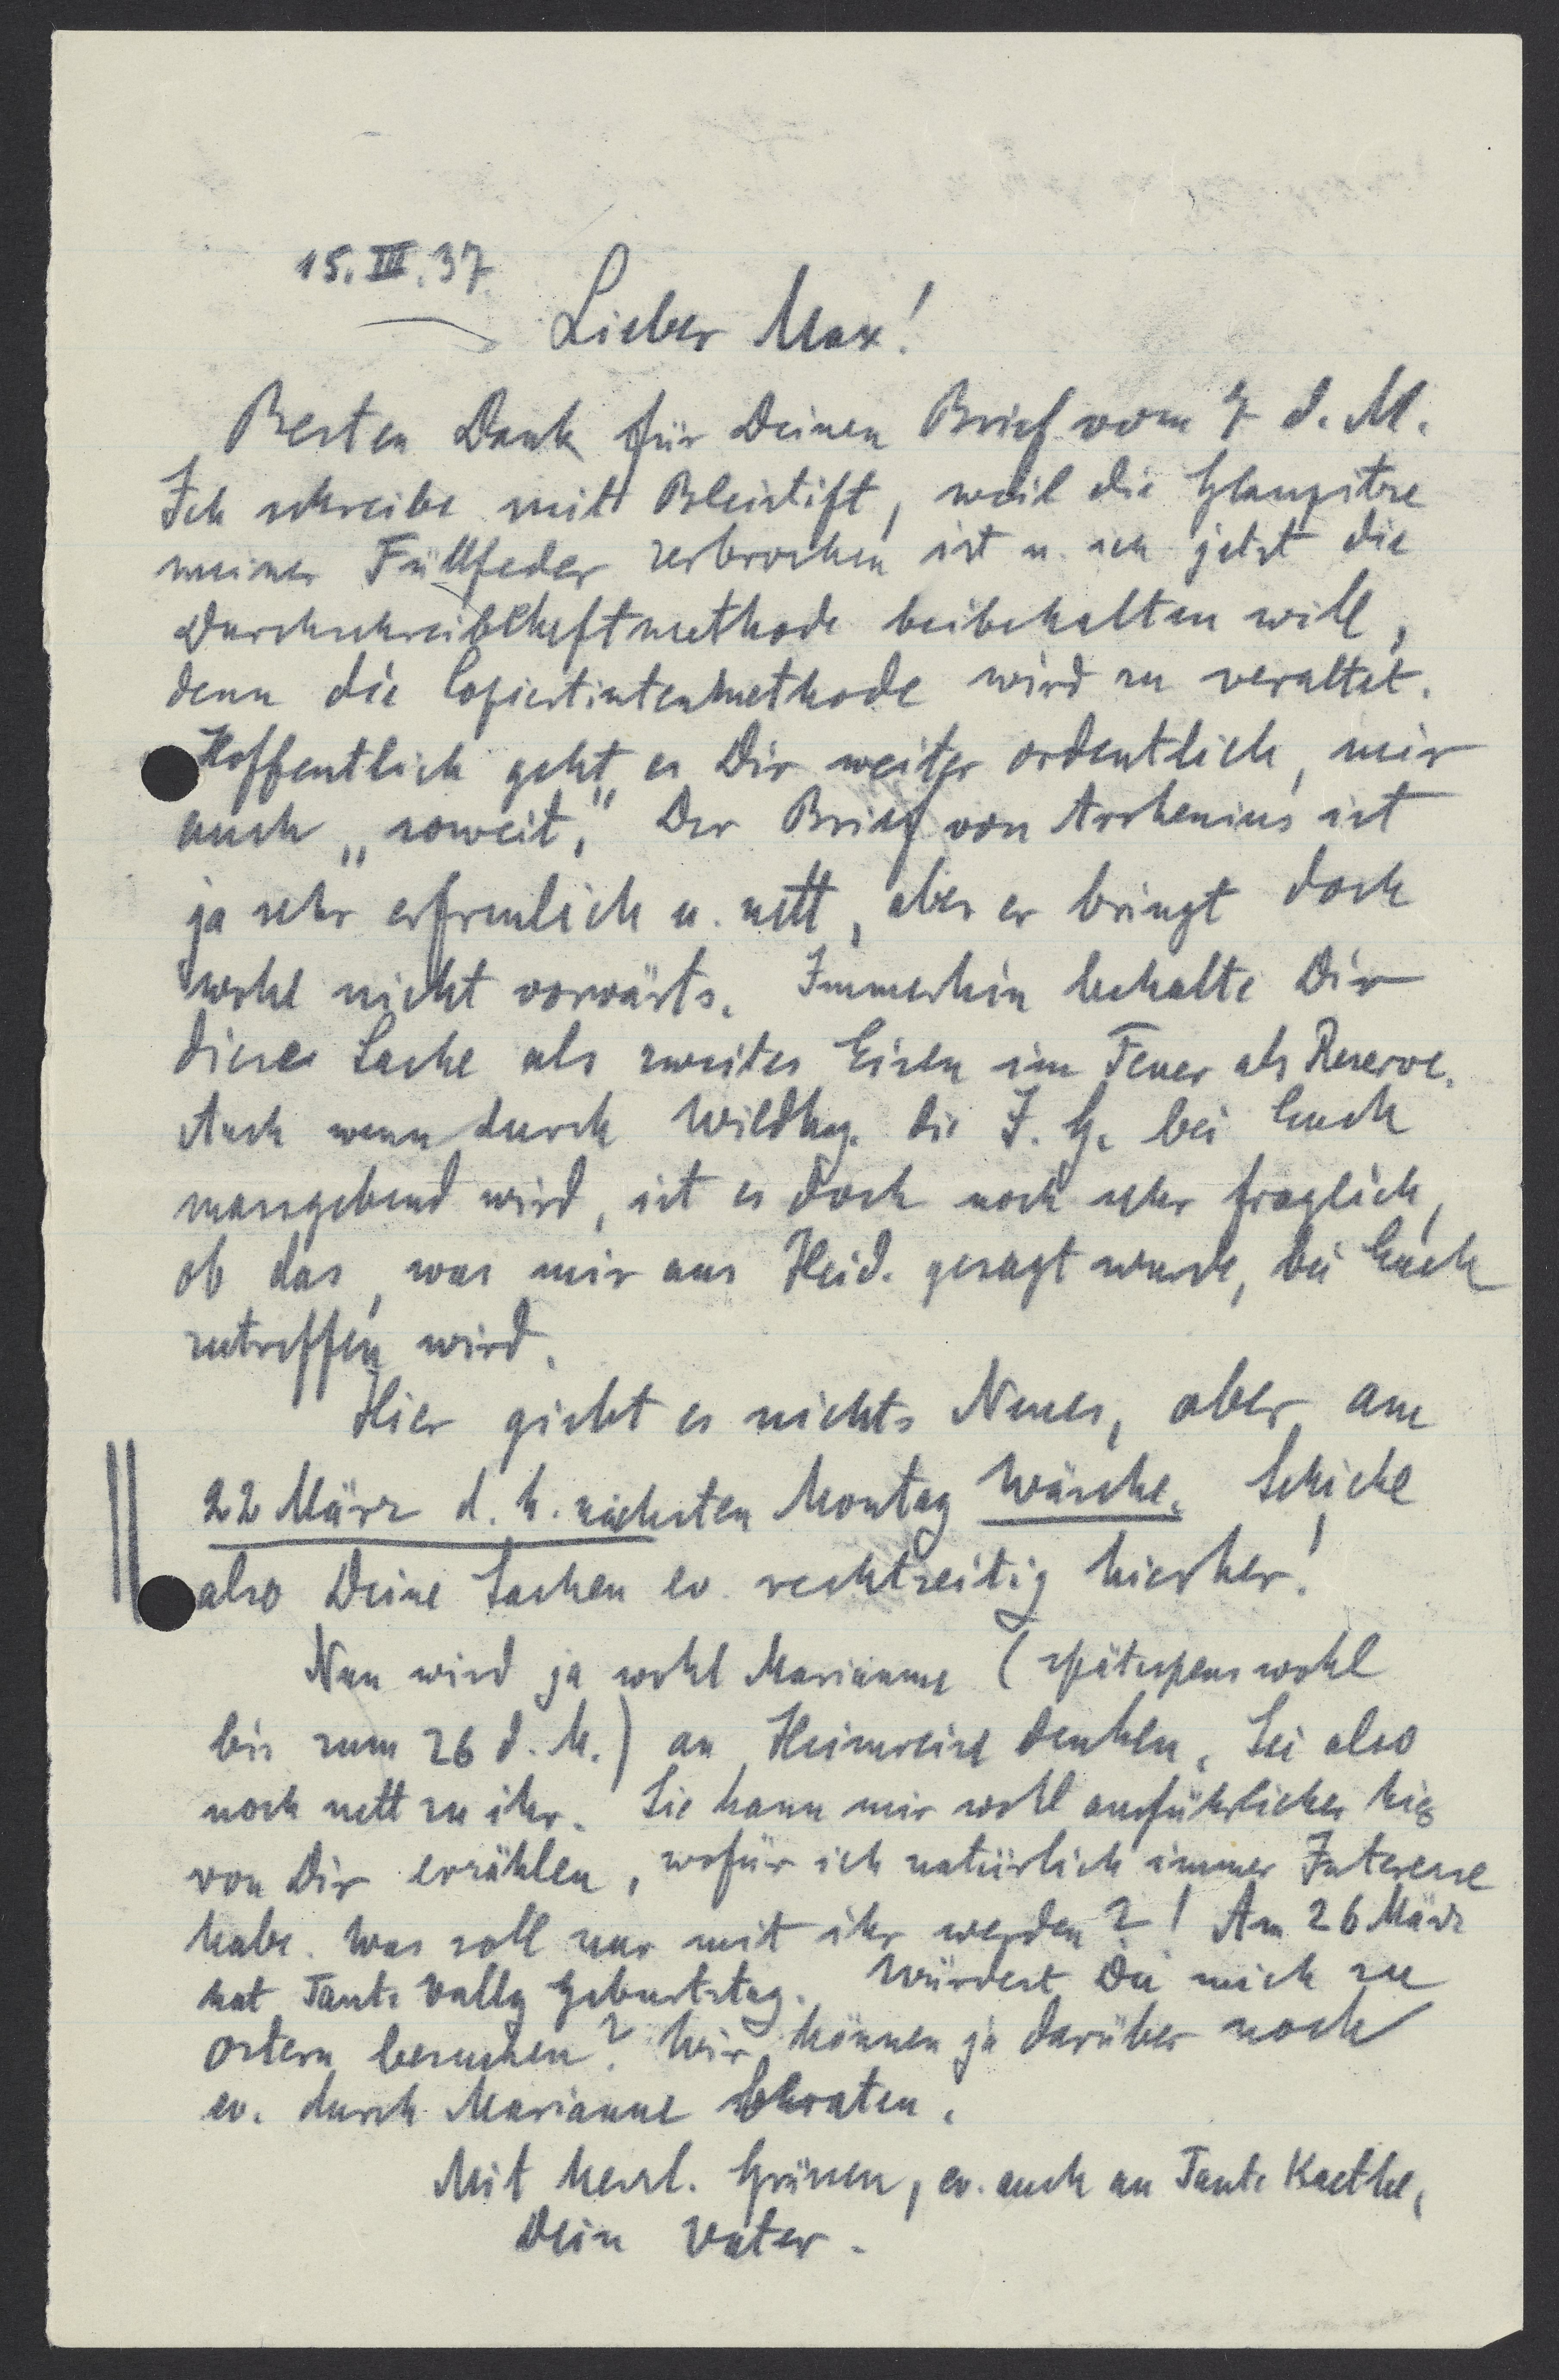 15.III.37.
Lieber Max!
Besten Dank für Deinen Brief vom 7 d. M.
Ich schreibe mit Bleistift, weil die Glasspitze
meiner Füllfeder zerbrochen ist u. ich jetzt die
Durchschreibheftmethode beibehalten will,
denn die Copiertintenmethode wird zu veraltet.
Hoffentlich geht es Dir weiter ordentlich, mir
auch „soweit“. Der Brief von Arrhenius ist
ja sehr erfreulich u. nett, aber er bringt doch
wohl nicht vorwärts. Immerhin behalte Dir
diese Sache als zweites Eisen im Feuer als Reserve.
Auch wenn durch Wildhg. die I. G. bei Euch
massgebend wird, ist es doch noch sehr fraglich,
ob das, was mir aus Heid. gesagt wurde, bei Euch
zutreffen wird.
Hier giebt es nichts Neues, aber am
22 März d. h. nächsten Montag Wäsche. Schicke
also Deine Sachen ev. rechtzeitig hierher!
Nun wird ja wohl Marianne (spätestens wohl
bis zum 26 d. M.) an Heimreise denken. Sei also
noch nett zu ihr. Sie kann mir wohl ausführlicher hier
von Dir erzählen, wofür ich natürlich immer Interesse
habe. Was soll nur mit ihr werden?! Am 26 März
hat Tante Vally Geburtstag. Würdest Du mich zu
Ostern besuchen? Wir können ja darüber noch
ev. durch Marianne beraten.
Mit herzl. Grüssen, ev. auch an Tante Kaethe,
Dein Vater.